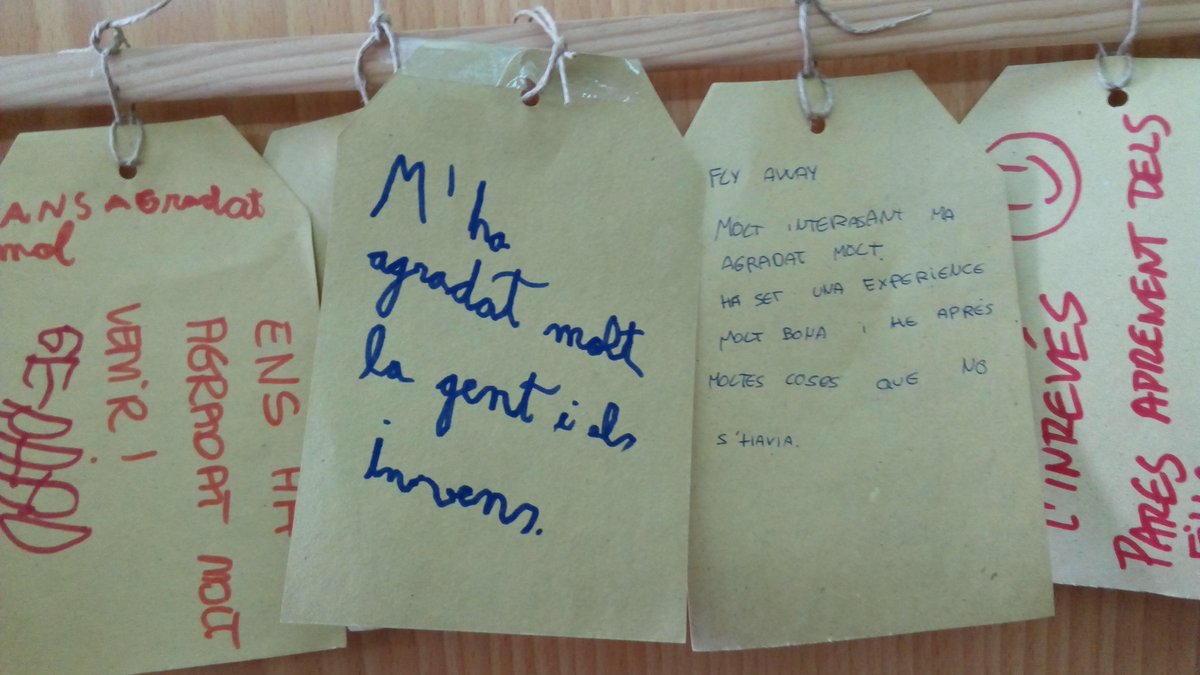 ANS AGRADAT
mol
ENS HA
AGRADAT MOLT
VENIR I
M'ha
agradat molt
la gent i els
invens.
FLY AWAY
MOLT INTERASANT MA
AGRADAT MOLT.
HA SET UNA EXPERIENCE
MOLT BONA I HE APRÉS
MOLTES COSES QUE NO
S'HAVIA.
L'INREVÉS
PARES APRENENT DELS